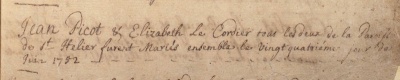 Jean Picot & Elizabeth Le Cordier tous les deux de la Paroisse
de St. Helier furent Mariés ensemble le vingt quatrieme jour De
Juin 1782